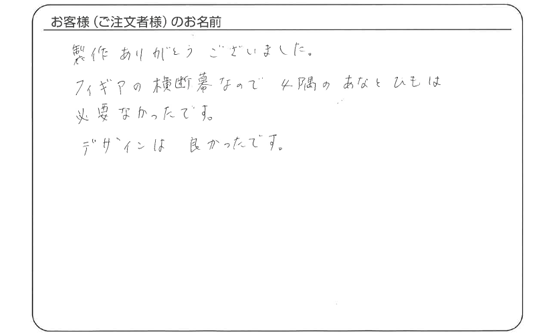 お客様（ご注文者様）のお名前
製作ありがとうございました。
フィギアの横断幕なので 4隅のあなとひもは
必要なかったです。
デザインは 良かったです。